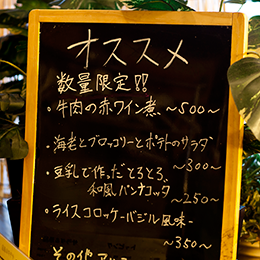 オススメ
数量限定!!
・牛肉の赤ワイン煮 〜500〜
・海老とブロッコリーとポテトのサラダ
〜300〜
・豆乳で作っだとろとろ、
和風パンナコッタ
〜250〜
・ライスコロッケーバジル風味-
〜350〜
その他